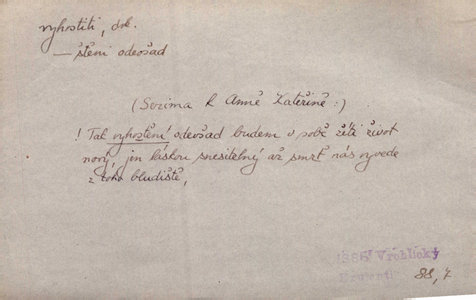 vyhostiti, dok.
— štěni odevšad
(Serima k Anně Kateřině:)
! Tak vyhoštěni odevšad budem v sobě žíti život
nový, jen láskou snesitelný až smrť nás vyvede
z toho bludiště,
1886 Vrchlický
88, 7